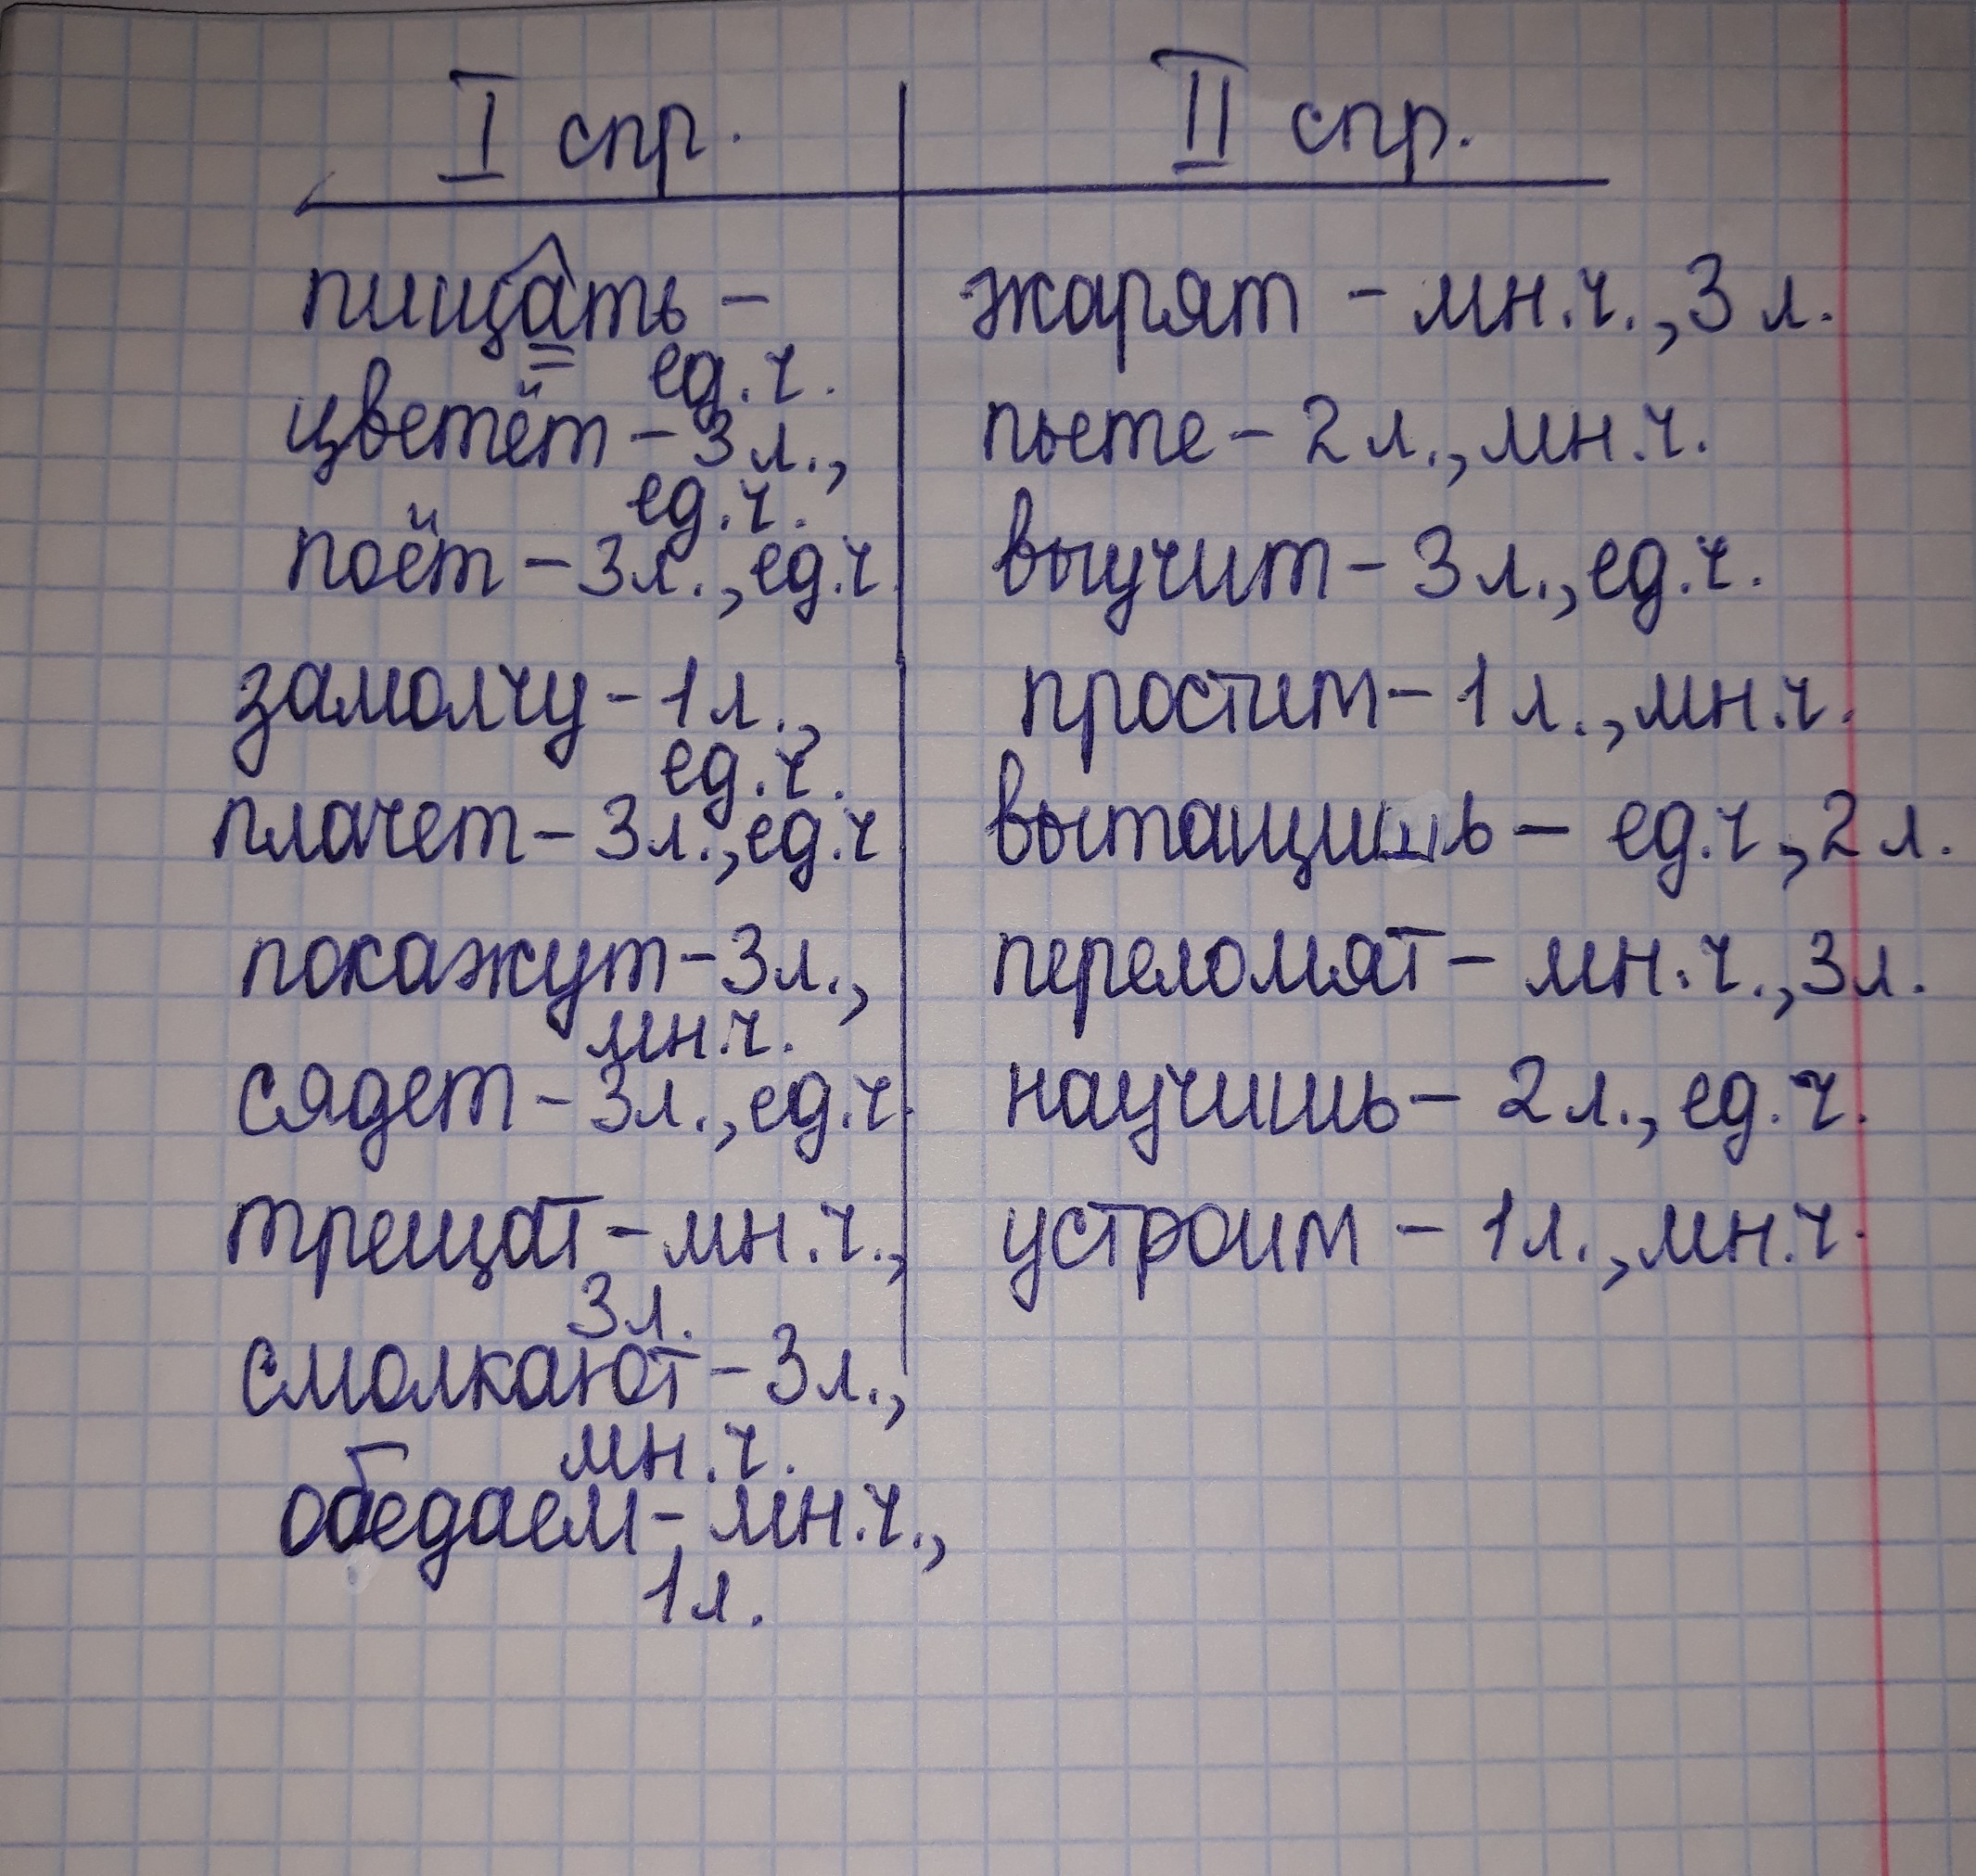 I спр. II спр.
пищать - жарят - мн.ч., 3 л.
ед.ч.
цветёт - 3 л., пьете - 2 л., мн.ч.
ед.ч.
поёт - 3 л., ед.ч. выучит - 3 л., ед.ч.
замолчу - 1 л., простим - 1 л., мн.ч.
ед.ч.
плачет - 3 л., ед.ч вытащишь - ед.ч, 2 л.
покажут - 3 л., переломят - мн.ч., 3 л.
мн.ч.
сядет - 3 л., ед.ч. научишь - 2 л., ед.ч.
трещат - мн.ч., устроим - 1 л., мн.ч.
3 л.
смолкают - 3 л.,
мн.ч.
обедаем - мн.ч.,
1 л.